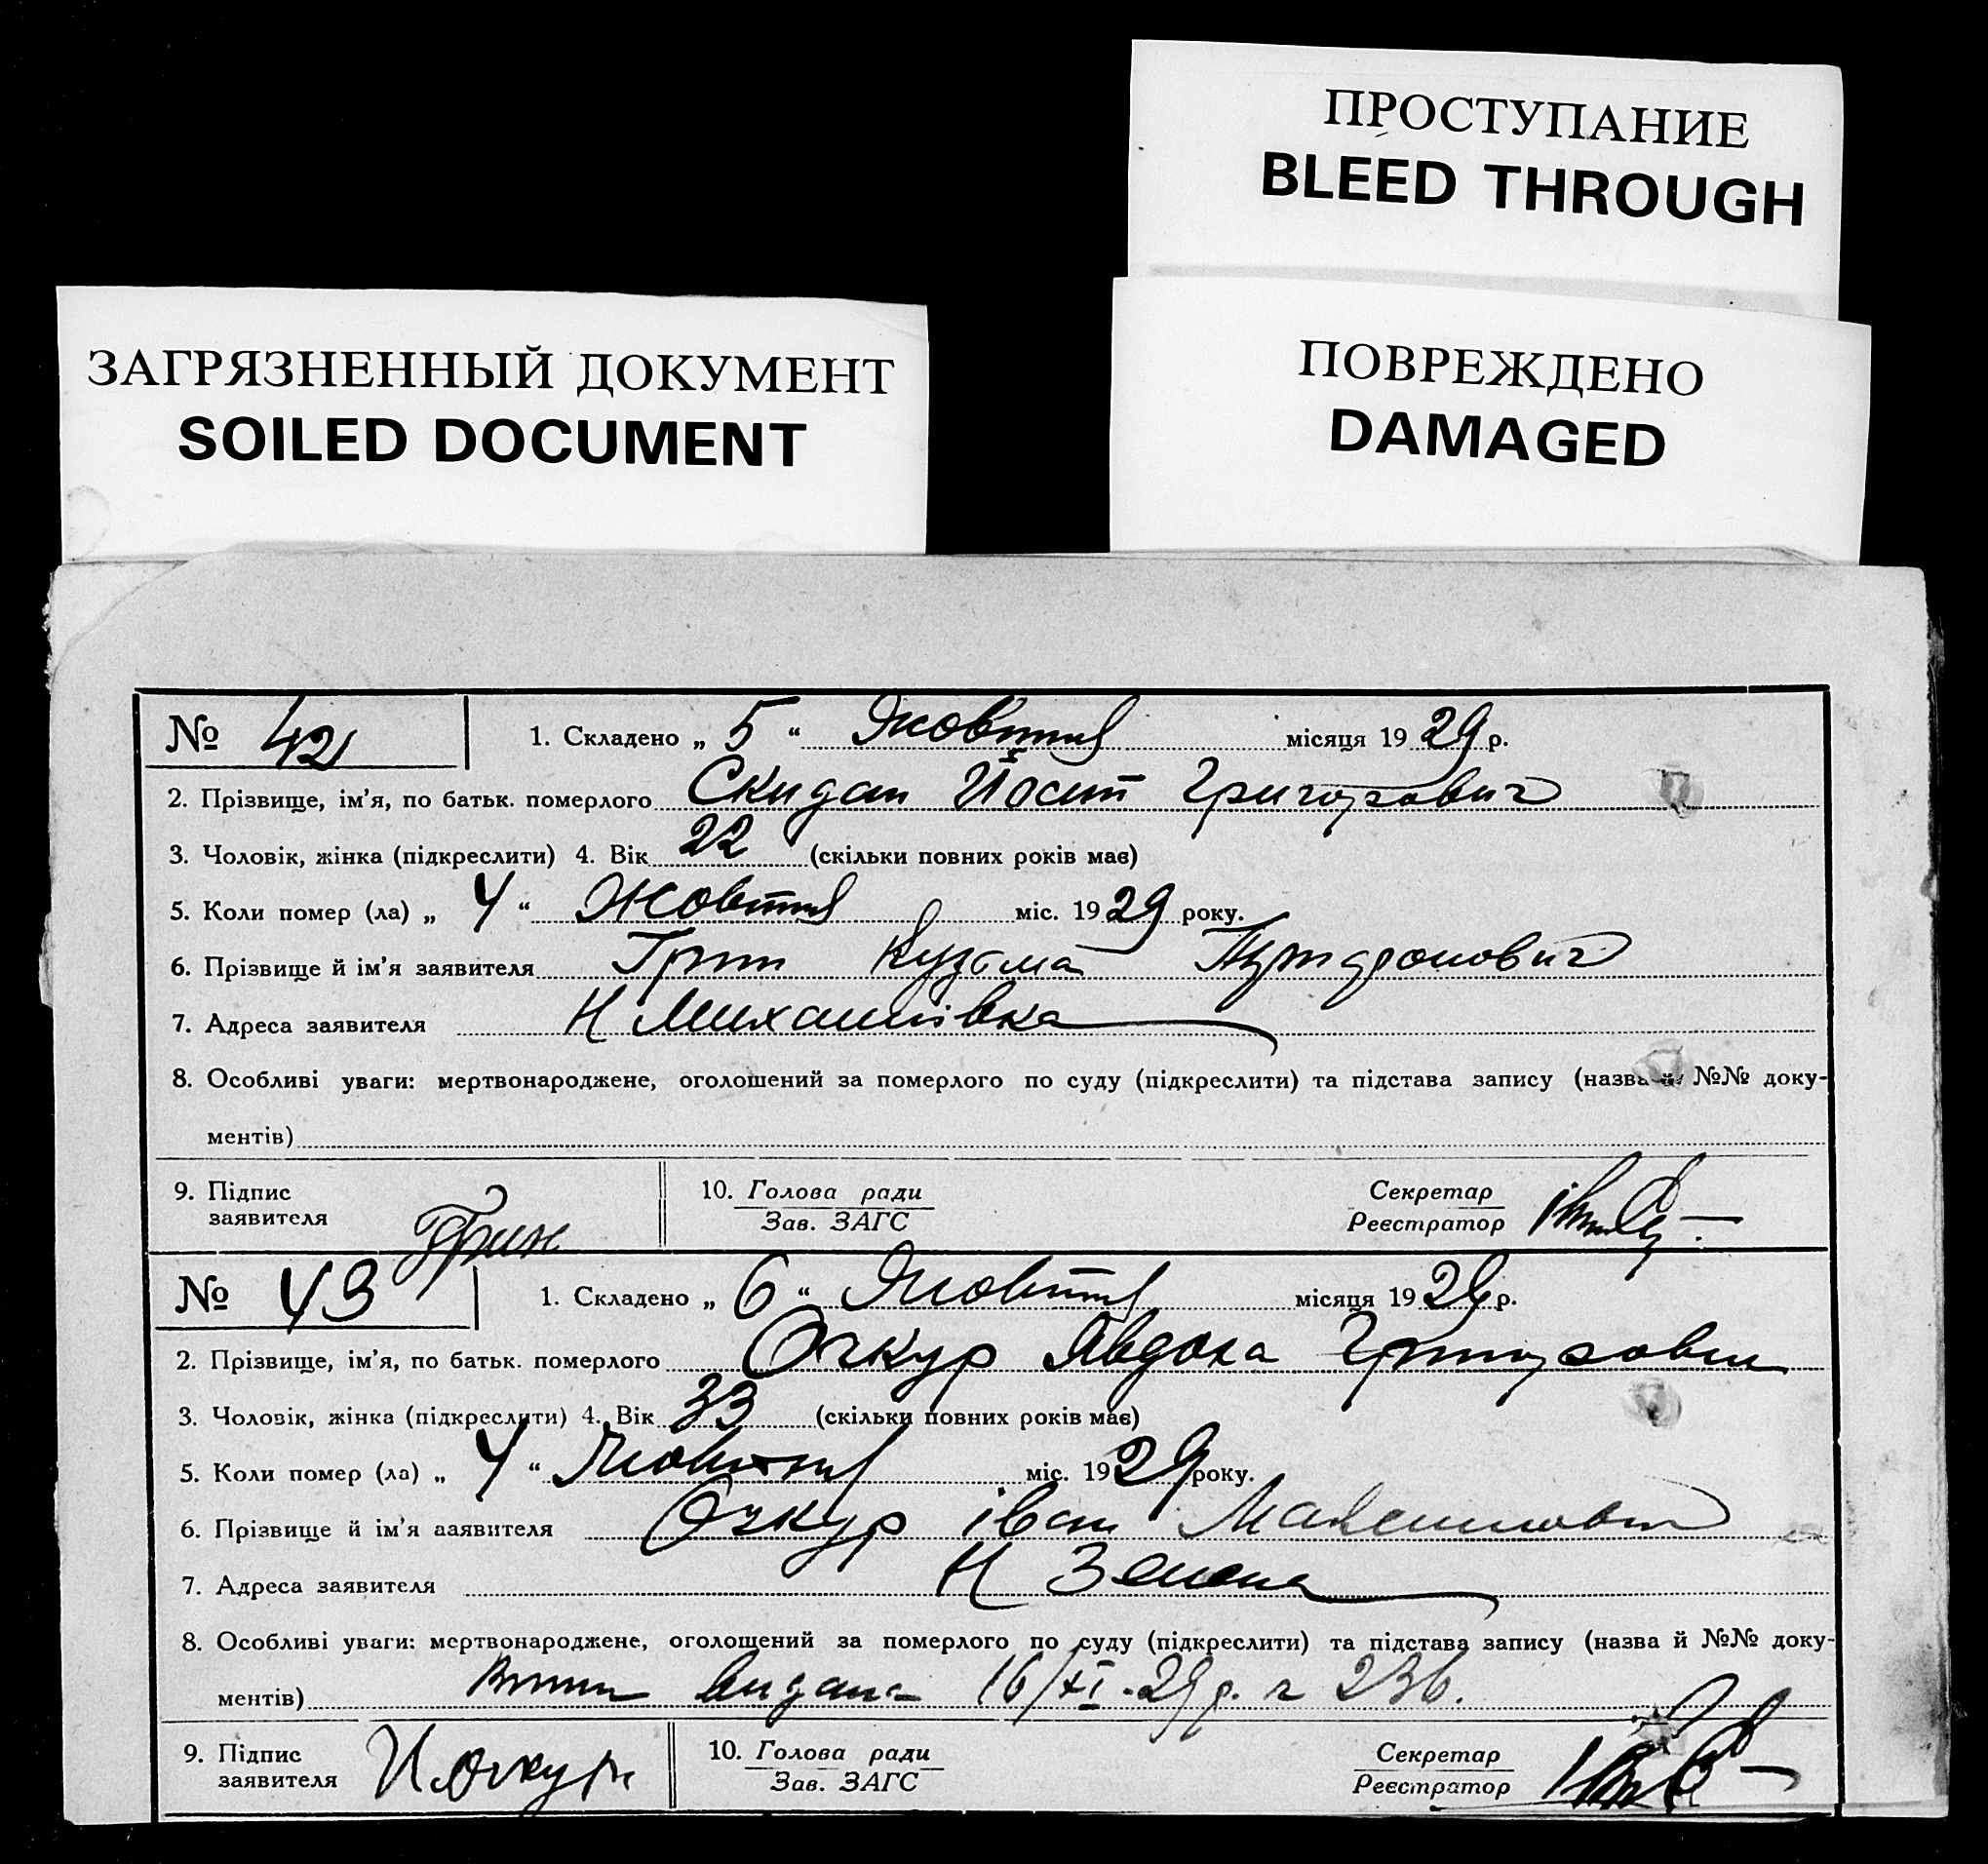 ПРОСТУПАНИЕ
BLEED THROUGH
ЗАГРЯЗНЕННЫЙ ДОКУМЕНТ
SOILED DOCUMENT
ПОВРЕЖДЕНО
DAMAGED
№ 42 1. Складено „ 5 “ Жовтня місяця 1929 р.
2. Прізвище, ім’я, по батьк. померлого Скидан Йосип Григорович
3. Чоловік, жінка (підкреслити) 4. Вік 22 (скільки повних років має)
5. Коли помер (ла) „ 4 “ Жовтня міс. 1929 року.
6. Прізвище й ім’я заявителя Грин Кузьма
7. Адреса заявителя Н Михайлівка
8. Особливі уваги: мертвонароджене, оголошений за померлого по суду (підкреслити) та підстава запису (назва й №№ доку-
ментів)
9. Підпис заявителя Грин 10. Голова ради Зав. ЗАГС Секретар Реєстратор
№ 43 1. Складено „ 6 “ Жовтня місяця 1929 р.
2. Прізвище, ім’я, по батьк. померлого Очкур Явдоха Григоровн
3. Чоловік, жінка (підкреслити) 4. Вік 33 (скільки повних років має)
5. Коли помер (ла) „ 4 “ Жовтня міс. 1929 року.
6. Прізвище й ім’я заявителя Очкур іван Максимович
7. Адреса заявителя Н
8. Особливі уваги: мертвонароджене, оголошений за померлого по суду (підкреслити) та підстава запису (назва й №№ доку-
ментів) видана 16/XI-29р.
9. Підпис заявителя И Очкур 10. Голова ради Зав. ЗАГС Секретар Реєстратор